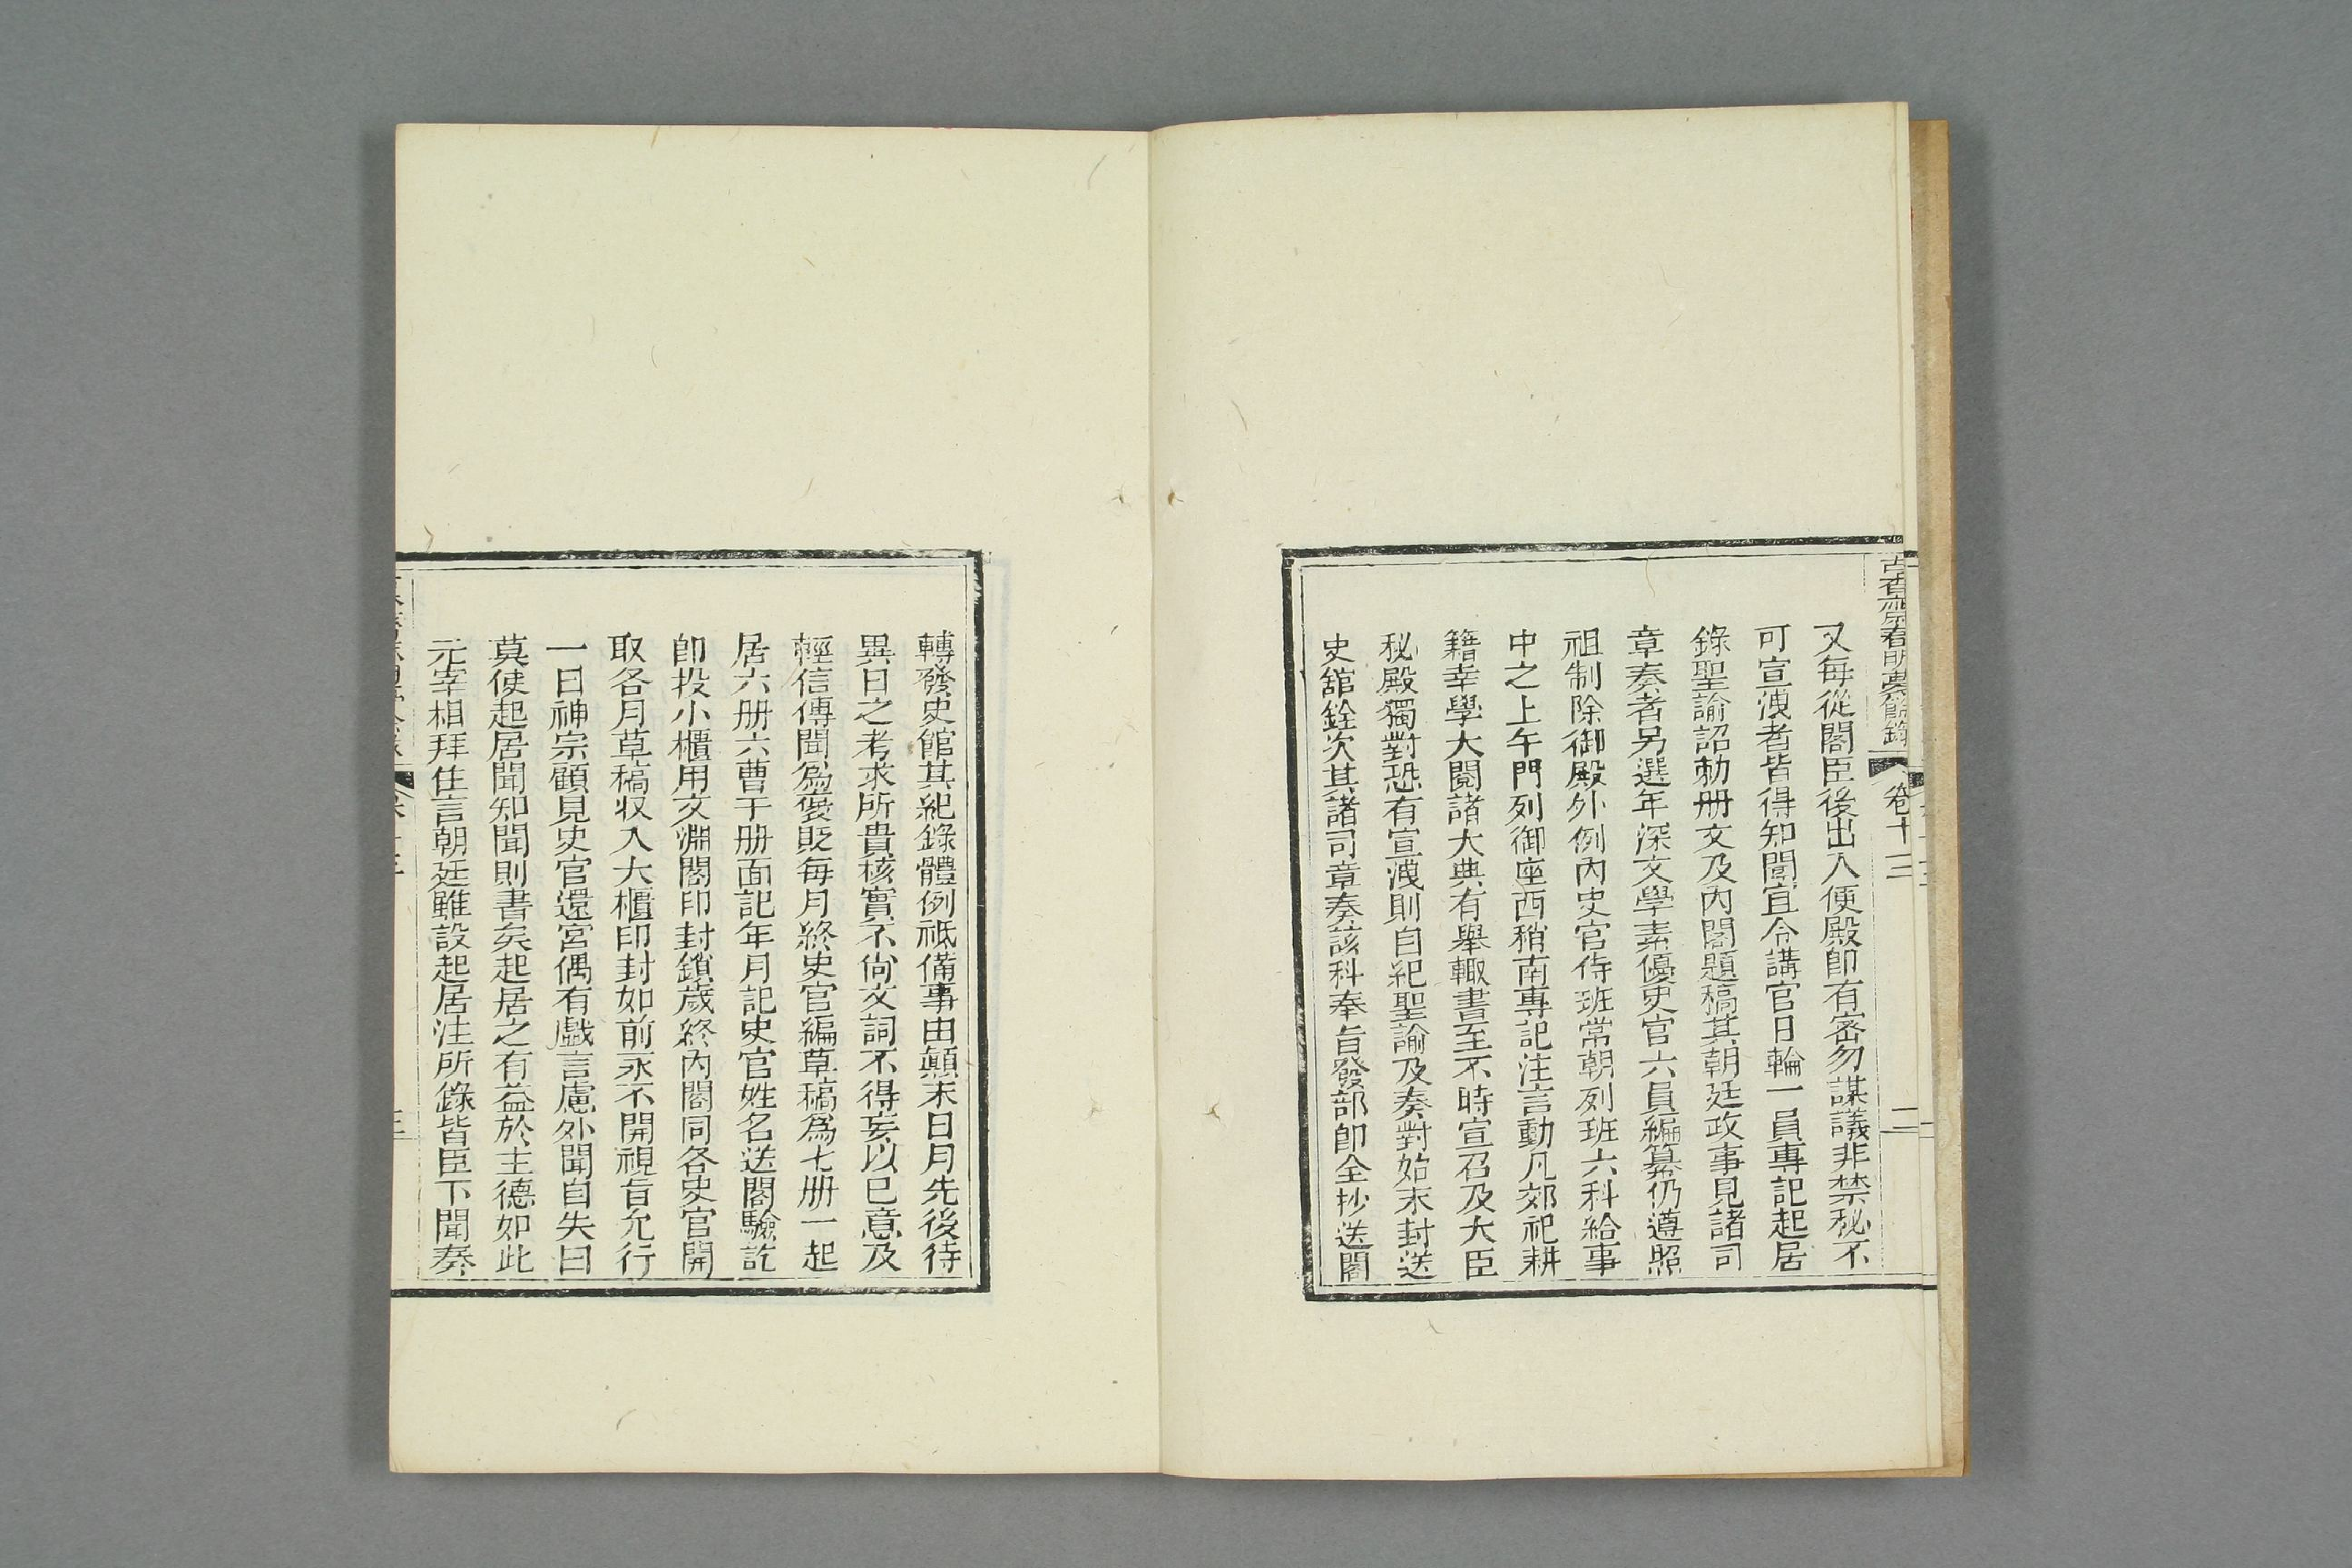 古香齋春明夢餘錄
卷十三
二
又每從閣臣後出入便殿卽有密勿謀議非禁秘不
可宣洩者皆得知聞宜令講官日輪一員專記起居
錄聖諭詔勅册文及內閣題稿其朝廷政事見諸司
章奏者另選年深文學素優史官六員編纂仍遵照
祖制除御殿外例內史官侍班常朝列班六科給事
中之上午門列御座西稍南專記注言動凡郊祀耕
籍幸學大閱諸大典有舉輙書至不時宣召及大臣
秘殿獨對恐有宣洩則自紀聖諭及奏對始末封送
史舘銓次其諸司章奏該科奉旨發部卽全抄送閣
轉發史館其紀錄體例祗備事由顚末日月先後待
異日之考求所貴核實不尙文詞不得妄以已意及
輕信傳聞爲褒貶每月終史官編草稿爲七册一起
居六册六曹于册面記年月記史官姓名送閣驗訖
卽投小櫃用文淵閣印封鎖歲終內閣同各史官開
取各月草稿収入大櫃印封如前永不開視旨允行
一日神宗顧見史官還宮偶有戲言慮外聞自失曰
莫使起居聞知聞則書矣起居之有益於主德如此
元宰相拜住言朝廷雖設起居注所錄皆臣下聞奏